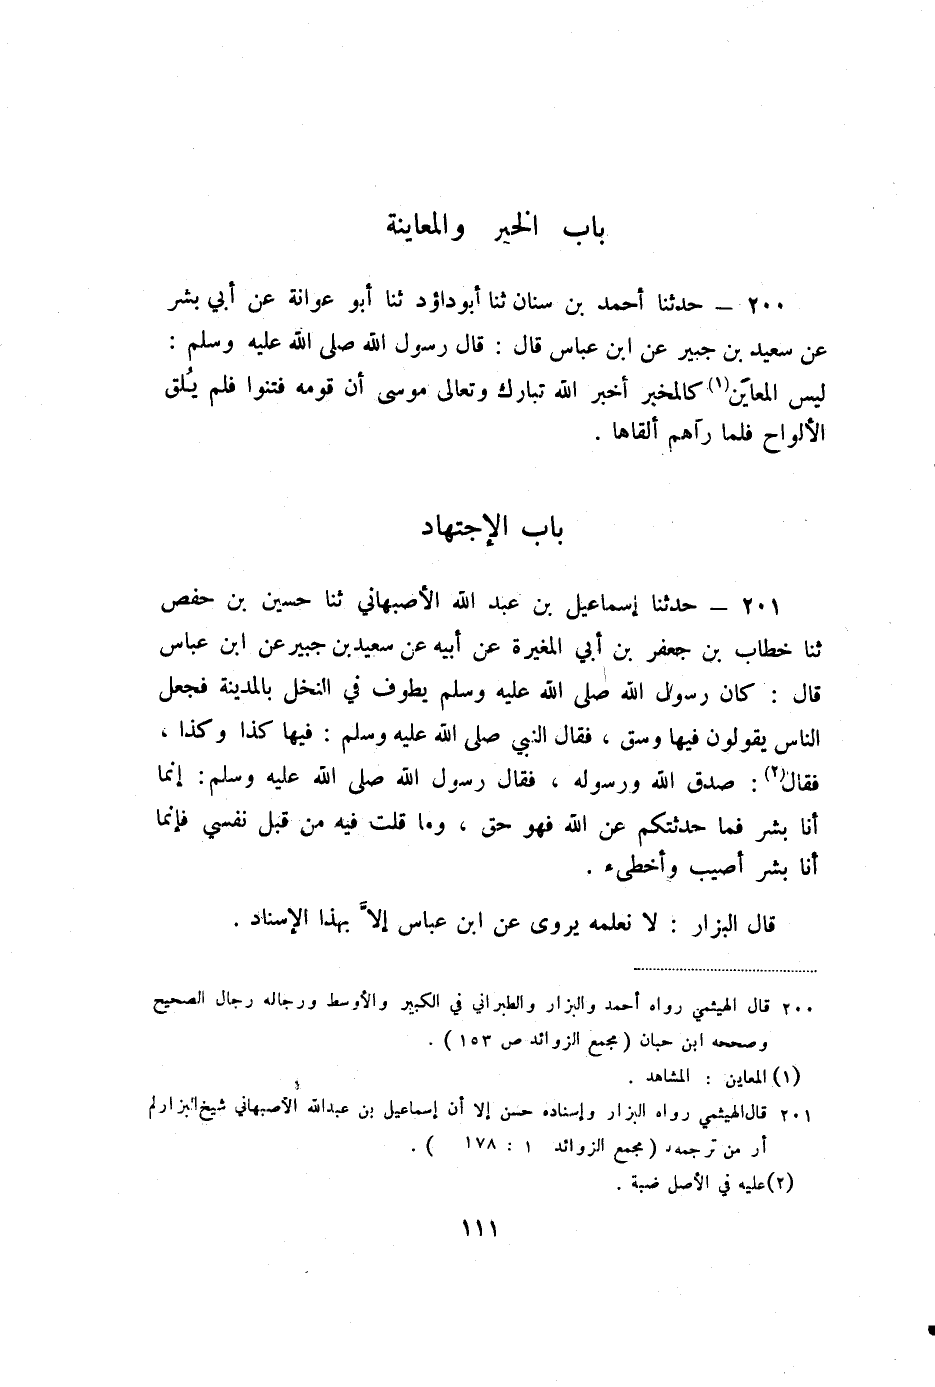 باب الخبر والمعاينة
٢٠٠ – حدثنا أحمد بن سنان ثنا أبوداؤد ثنا أبو عوانة عن أبي بشر
عن سعيد بن جبير عن ابن عباس قال : قال رسول الله صلى الله عليه وسلم :
ليس المعاين(١) كالمخبر أخبر الله تبارك وتعالى موسى أن قومه فتنوا فلم يُلق
الألواح فلما رآهم ألقاها .
باب الإجتهاد
٢٠١ – حدثنا إسماعيل بن عبد الله الأصبهاني ثنا حسين بن حفص
ثنا خطاب بن جعفر بن أبي المغيرة عن أبيه عن سعيدبن جبير عن ابن عباس
قال : كان رسول الله صلى الله عليه وسلم يطوف في النخل بالمدينة فجعل
الناس يقولون فيها وسق ، فقال النبي صلى الله عليه وسلم : فيها كذا وكذا ،
فقال(٢) : صدق الله ورسوله ، فقال رسول الله صلى الله عليه وسلم: إنما
أنا بشر فما حدثتكم عن الله فهو حق ، وما قلت فيه من قبل نفسي فإنما
أنا بشر أصيب وأخطىء .
قال البزار : لا نعلمه يروى عن ابن عباس إلاَّ بهذا الإسناد .
٢٠٠ قال الهيثمي رواه أحمد والبزار والطبراني في الكبير والأوسط ورجاله رجال الصحيح
وصححه ابن حبان ( مجمع الزوائد ص ١٥٣ ) .
(١) المعاين : المشاهد .
٢٠١ قال الهيثمي رواه البزار وإسناده حسن إلا أن إسماعيل بن عبدالله الأصبهاني شيخ البزار لم
أر من ترجمه ( مجمع الزوائد ١ : ١٧٨ ) .
(٢) عليه في الأصل ضبة .
١١١